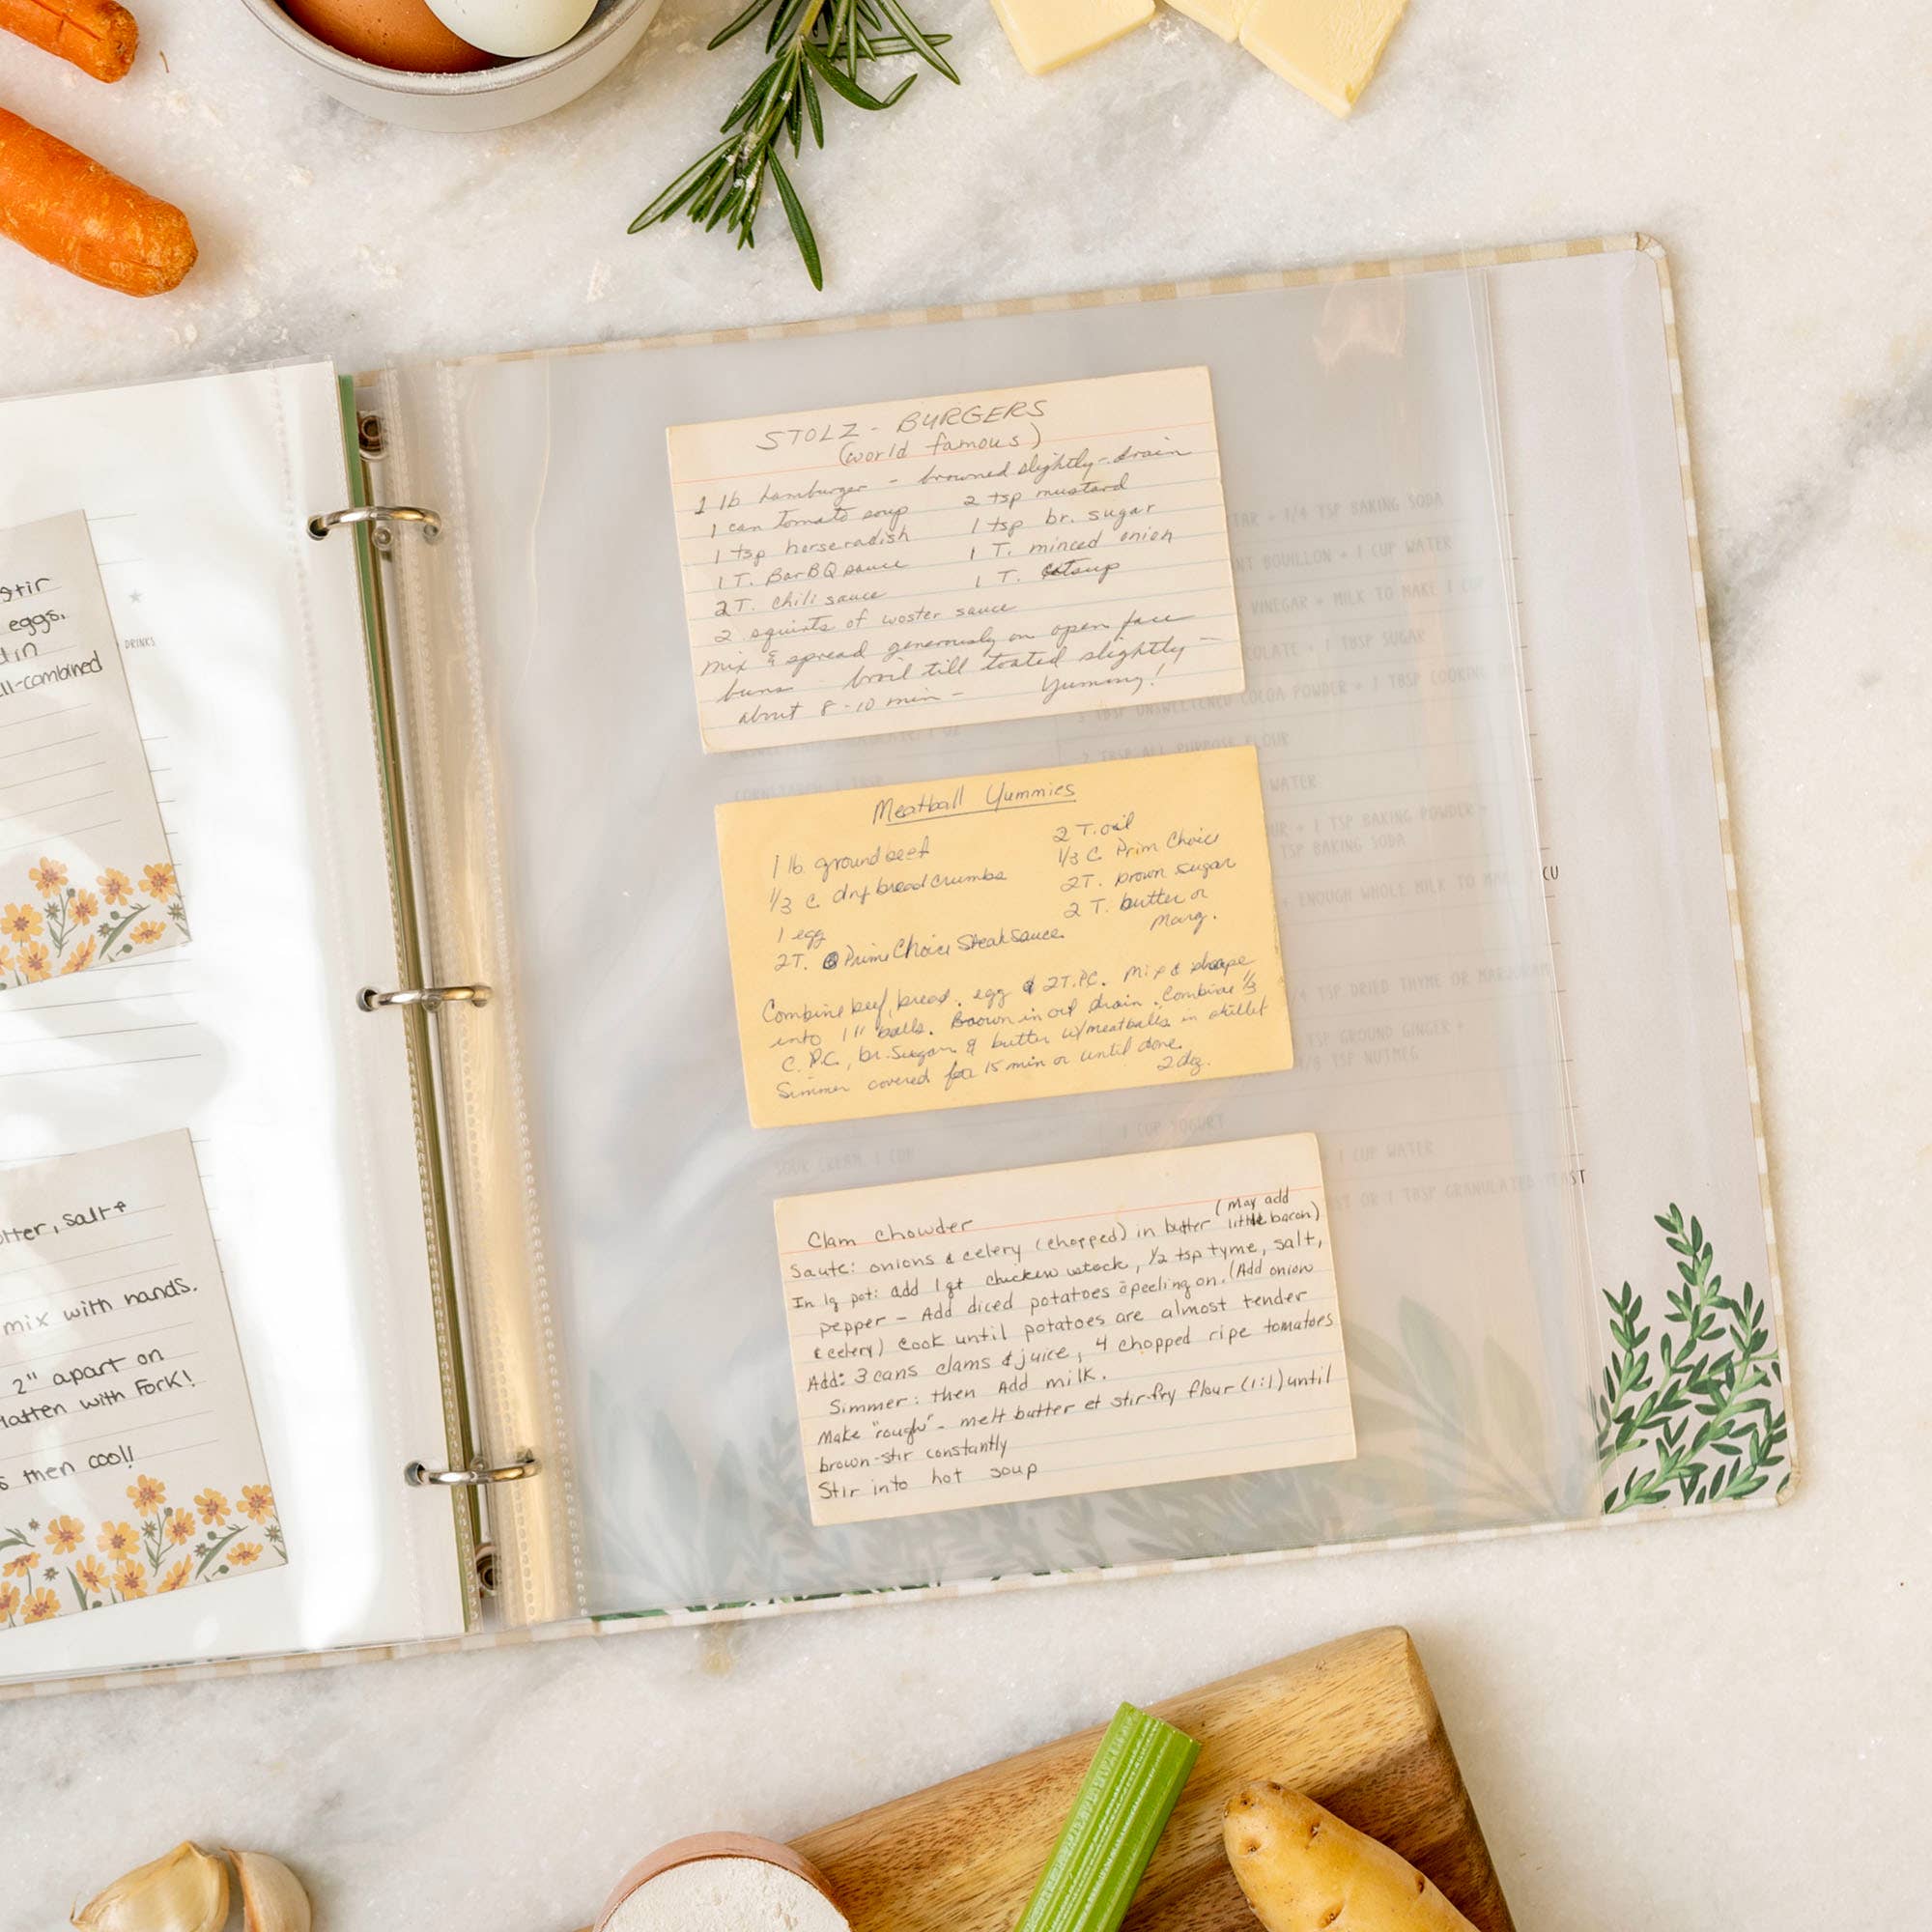 stir
eggs.
d in
ll-combined
DRINKS
tter, salt +
mix with hands.
2" apart on
latten with FORK!
s then cool!
STOLZ - BURGERS
(world famous)
1 lb hamburger - browned slightly - drain
1 can tomato soup 2 tsp mustard
1 tsp horseradish 1 tsp br. sugar
1 T. BarBQ sauce 1 T. minced onion
2 T. chili sauce 1 T. catsup
2 squirts of woster sauce
mix & spread generously on open face
buns broil till toated slightly -
about 8-10 min - Yummy!
Meatball Yummies
1 lb ground beef 2 T. oil
1/3 C dry bread crumbs 1/3 C Prim Choice
1 egg 2T. brown sugar
2T. Prime Choice Steak Sauce 2 T. butter or
Marg.
Combine beef, bread, egg & 2T. P.C. Mix & shape
into 1" balls. Brown in oil drain. Combine 1/3
C. P.C., br. sugar & butter w/meatballs in skillet
Simmer covered for 15 min or until done.
2 doz.
Clam Chowder (may add
Saute: onions & celery (chopped) in butter little bacon)
In lg pot: add 1 qt chicken stock, 1/2 tsp tyme, salt,
pepper - Add diced potatoes c̄ peeling on. (Add onion
& celery) Cook until potatoes are almost tender
Add: 3 cans clams & juice, 4 chopped ripe tomatoes
Simmer: then Add milk.
Make "rough" - melt butter et stir-fry flour (1:1) until
brown - stir constantly
Stir into hot soup
TAR + 1/4 TSP BAKING SODA
NT BOUILLON + 1 CUP WATER
VINEGAR + MILK TO MAKE 1 CUP
COLATE + 1 TBSP SUGAR
3 TBSP UNSWEETENED COCOA POWDER + 1 TBSP COOKING
CORNSTARCH, 1 TBSP 2 TBSP ALL PURPOSE FLOUR
WATER
UR + 1 TSP BAKING POWDER +
TSP BAKING SODA
+ ENOUGH WHOLE MILK TO
CU
1/4 TSP DRIED THYME OR MARJORAM
TSP GROUND GINGER +
1/8 TSP NUTMEG
1 CUP YOGURT
SOUR CREAM, 1 CUP
1 CUP WATER
ST OR 1 TBSP GRANULATED YEAST